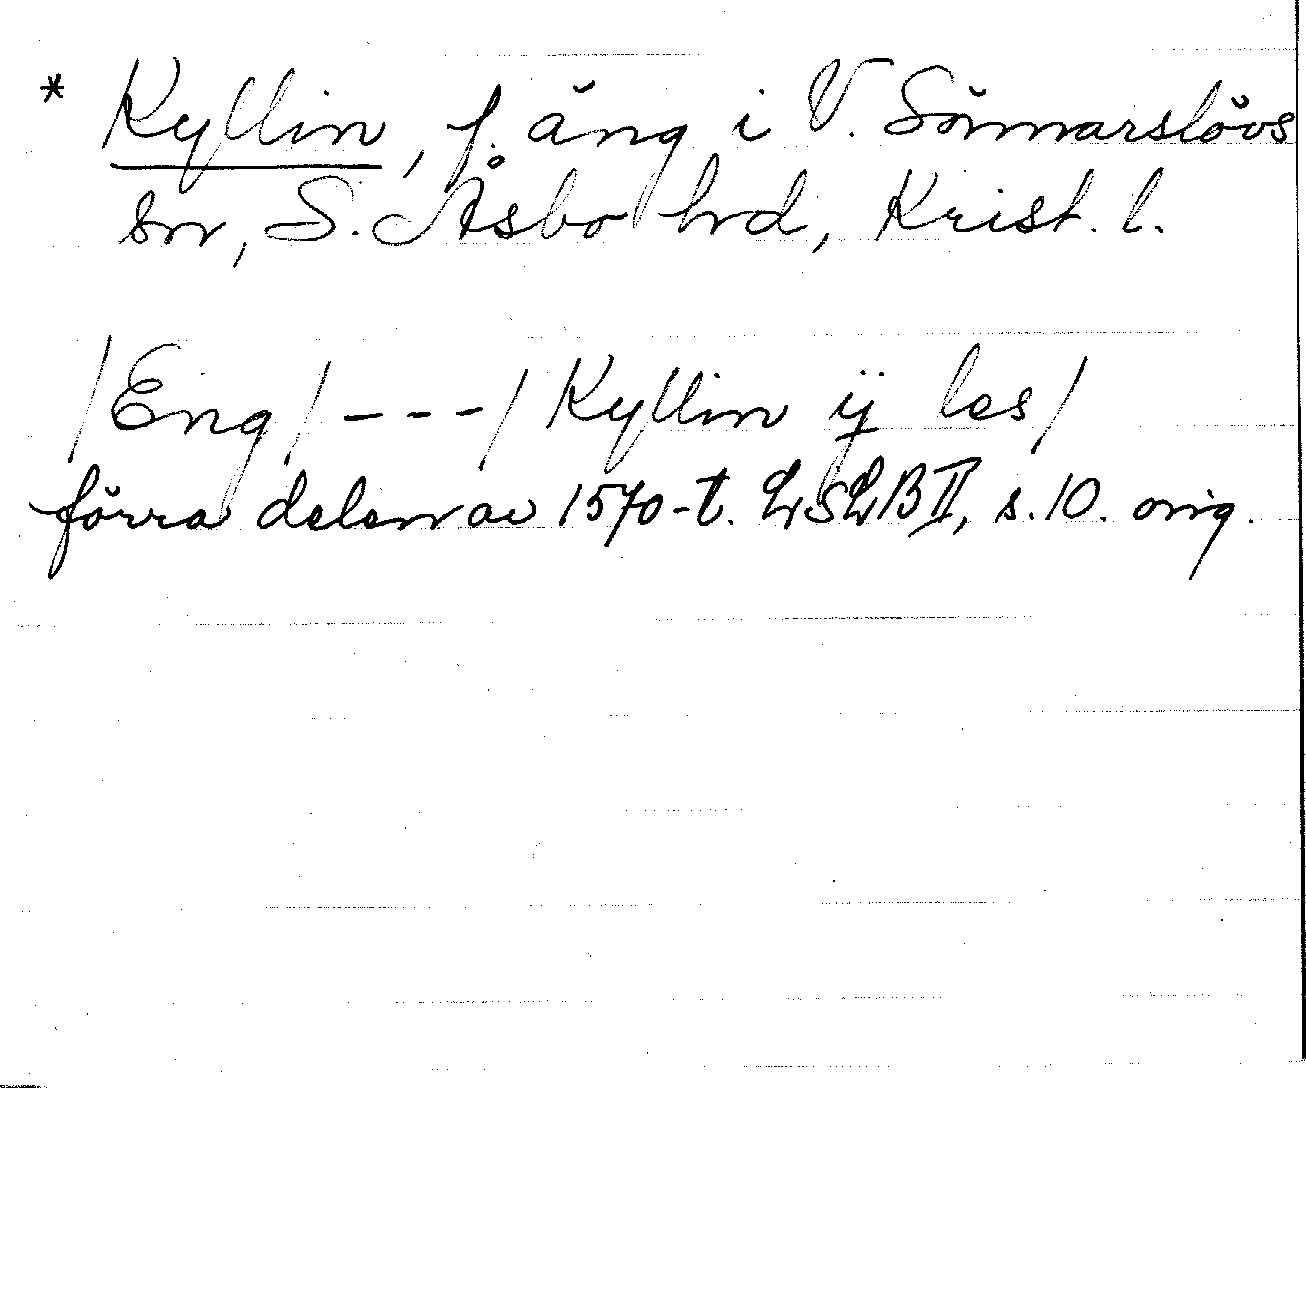 * Kyllin, f. äng i V. Sönnarslövs
sn, S. Åsbo hd, Krist. l.
/Eng/---/Kyllin ij les/
förra delen av 1570-t. LSLB II, s. 10. orig.